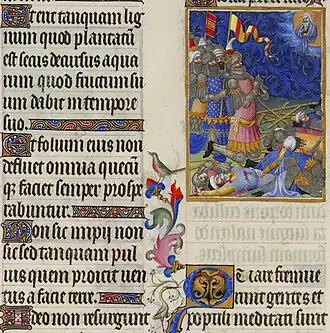 Et erit tanquam lig
num quod plantatum
est secus decursus aqua
rum quod fructum su
um dabit in tempore
suo.
Et folium eius non
defluet omnia quecũ
q̃ faciet semper prospe
rabuntur.
Non sic impii non
sic sed tanquam pul
uis quem proicit uen
tus a facie terre.
Ideo non resurgunt
Quare fremue
runt gentes et
populi meditati sunt